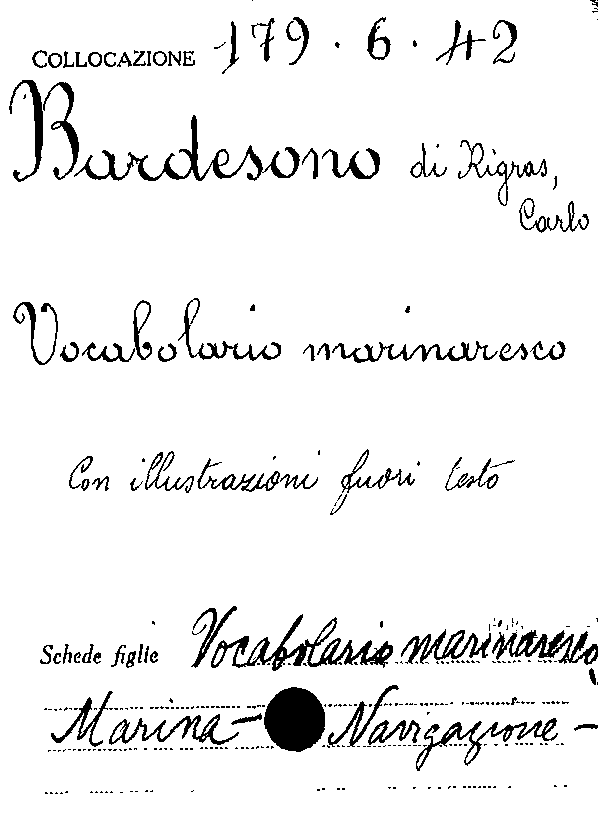 COLLOCAZIONE 179.6.42
Bardesono di Rigras,
Carlo
Vocabolario marinaresco
Con illustrazioni fuori testo
Schede figlie Vocabolario marinaresco,
Marina - Navigazione -